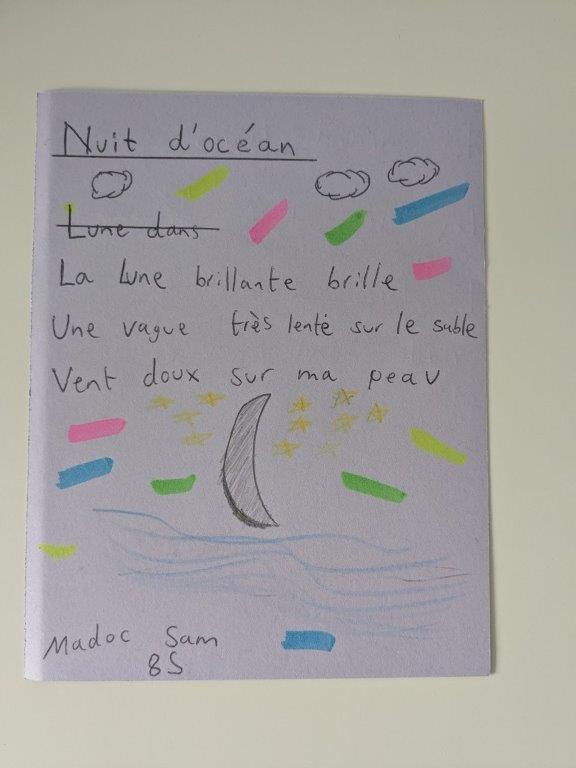 Nuit d'océan
Lune dans
La Lune brillante brille
Une vague très lente sur le sable
Vent doux sur ma peau
Madoc Sam
8S